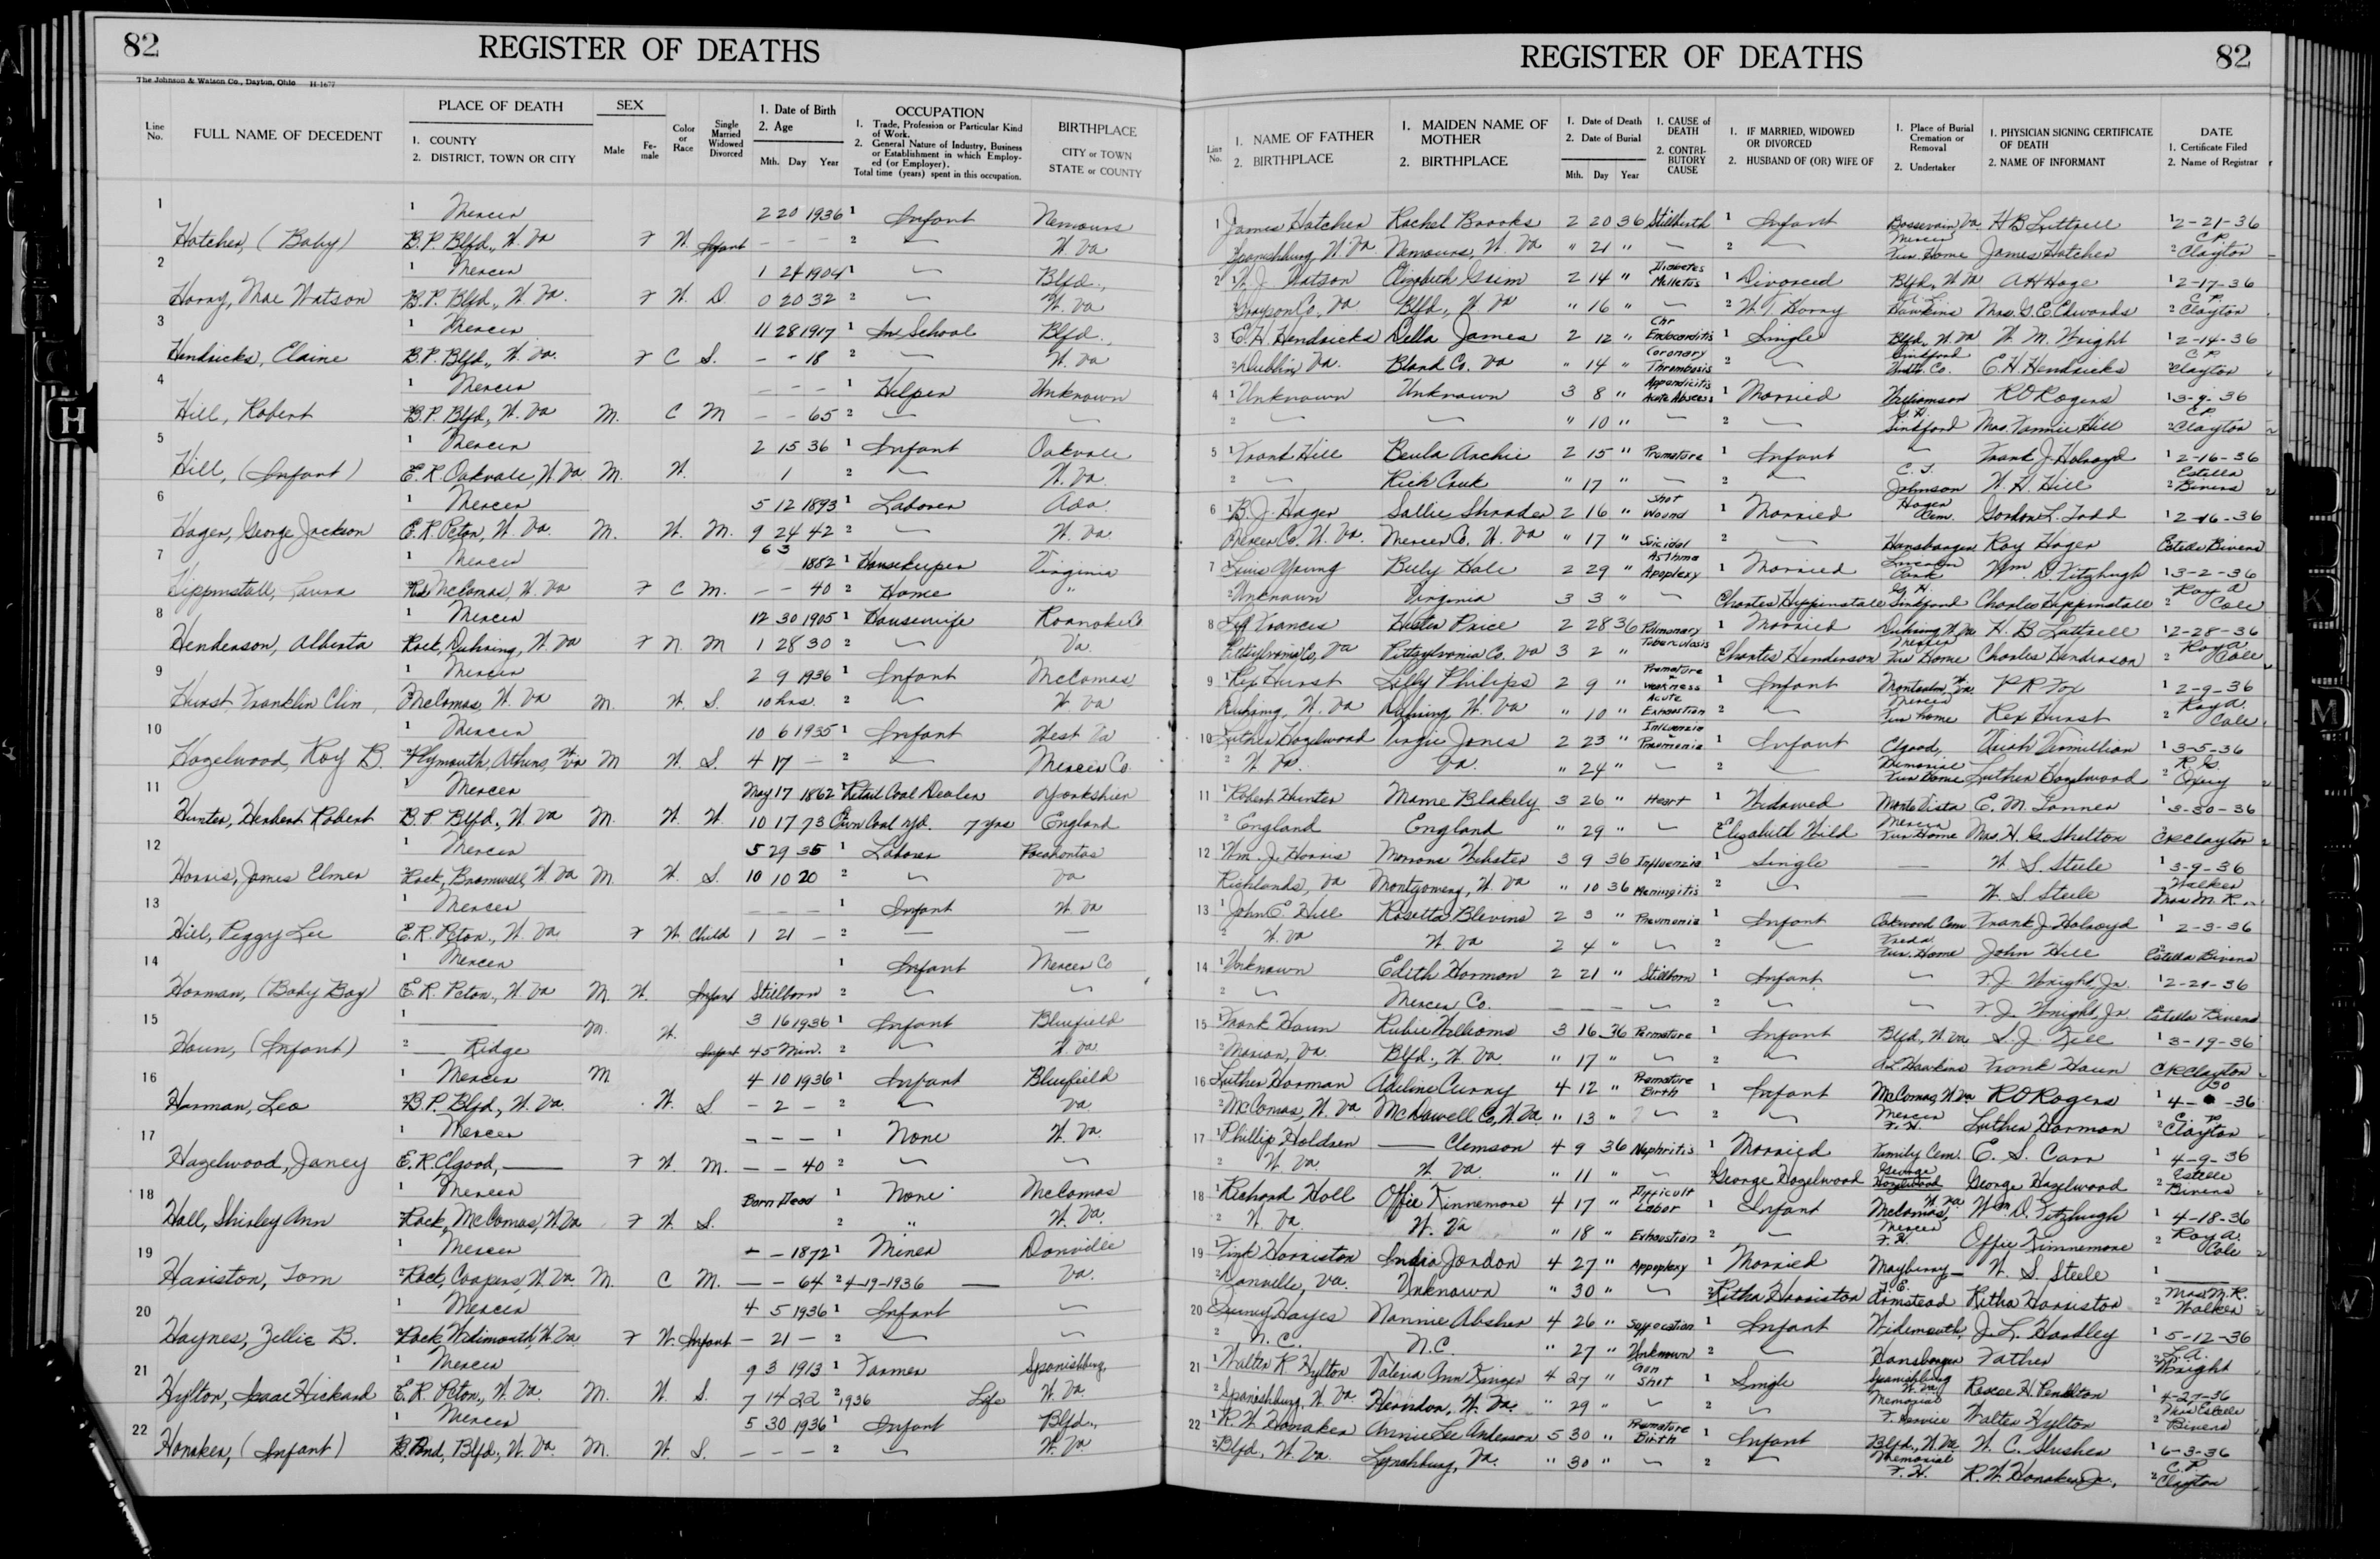 82
REGISTER OF DEATHS
The Johnson & Watson Co., Dayton, Ohio H-1677
Line No.
FULL NAME OF DECEDENT
PLACE OF DEATH
1. COUNTY
2. DISTRICT, TOWN OR CITY
SEX
Male
Female
Color or Race
Single Married Widowed Divorced
1. Date of Birth
2. Age
Mth. Day Year
OCCUPATION
1. Trade, Profession or Particular Kind of Work.
2. General Nature of Industry, Business or Establishment in which Employed (or Employer).
Total time (years) spent in this occupation.
BIRTHPLACE
CITY or TOWN
STATE or COUNTY
1 1 Mercer 2 20 1936 1 Infant Nemours
Hatcher, (Baby) B.P. Blfd., W. Va F W. Infant - - - 2 W. Va
2 1 Mercer 1 24 1904 1 Blfd.,
Horny, Mae Watson B.P. Blfd., W. Va. F W. D 0 20 32 2 W. Va
3 1 Mercer 11 28 1917 1 In School Blfd.,
Hendricks, Elaine B.P. Blfd., W. Va. F C S. - - 18 2 W. Va
4 1 Mercer - - - 1 Helper Unknown
Hill, Robert B.P. Blfd., W. Va M. C M - - 65 2
5 1 Mercer 2 15 36 1 Infant Oakvale
Hill, (Infant) E.R. Oakvale, W. Va M. W. 1 2 W. Va.
6 1 Mercer 5 12 1893 1 Laborer Ada.
Hager, George Jackson E.R. Pcton, W. Va. M. W. M. 9 24 42 2 W. Va.
7 1 Mercer 6 3 1882 1 Housekeeper Virginia
Hippinstall, Laura McComas, W. Va F C M. - - 40 2 Home "
8 1 Mercer 12 30 1905 1 Housewife Roanoke Co
Henderson, Alberta Rock, Duhring, W. Va F N. M 1 28 30 2 Va.
9 1 Mercer 2 9 1936 1 Infant McComas,
Hurst, Franklin Clin McComas, W. Va M. W. S. 10 hrs. 2 W. Va
10 1 Mercer 10 6 1935 1 Infant West Va
Hazelwood, Roy B. Plymouth, Athens, W. Va M W. S. 4 17 - 2 Mercer Co.
11 1 Mercer May 17 1862 1 Retail Coal Dealer Yorkshier
Hunter, Herbert Robert B.P. Blfd., W. Va M. W. W. 10 17 73 Own Coal yd. 7 yrs England
12 1 Mercer 5 29 35 1 Laborer Pocahontas
Harris, James Elmer Rock, Bramwell, W. Va M. W. S. 10 10 20 2 Va
13 1 Mercer - - - 1 Infant W. Va
Hill, Peggy Lee E.R. Pcton., W. Va F W. Child 1 21 - 2
14 1 Mercer 1 Infant Mercer Co
Harman, (Baby Boy) E.R. Pcton, W. Va M. W. Infant Stillborn 2
15 1 M. W. 3 16 1936 1 Infant Bluefield
Haun, (Infant) 2 Ridge Infant 45 Min. 2 W. Va.
16 1 Mercer M 4 10 1936 1 Infant Bluefield
Harman, Leo B.P. Blfd., W. Va. W. S - 2 - 2 Va
17 1 Mercer - - - 1 None W. Va.
Hazelwood, Janey E.R. Elgood, F W. M. - - 40 2
18 1 Mercer Born Dead 1 None McComas
Hall, Shirley Ann Rock, McComas, W. Va F W. S. 2 " W. Va.
19 1 Mercer - - 1872 1 Miner Danville
Hariston, Tom Rock, Coopers, W. Va. M. C M. - - 64 2 4-19-1936 Va.
20 1 Mercer 4 5 1936 1 Infant
Haynes, Zellie B. Rock, Widemouth, W. Va. F W. Infant - 21 - 2
21 1 Mercer 9 3 1913 1 Farmer Spanishburg,
Hylton, Isaac Hickard E.R. Pcton., W. Va. M. W. S. 7 14 22 2 1936 Life W. Va.
22 1 Mercer 5 30 1936 1 Infant Blfd.,
Honaker, (Infant) B. Pond, Blfd., W. Va M. W. S. - - - 2 W. Va
REGISTER OF DEATHS
82
Line No.
1. NAME OF FATHER
2. BIRTHPLACE
1. MAIDEN NAME OF MOTHER
2. BIRTHPLACE
1. Date of Death
2. Date of Burial
Mth. Day Year
1. CAUSE of DEATH
2. CONTRIBUTORY CAUSE
1. IF MARRIED, WIDOWED OR DIVORCED
2. HUSBAND OF (OR) WIFE OF
1. Place of Burial Cremation or Removal
2. Undertaker
1. PHYSICIAN SIGNING CERTIFICATE OF DEATH
2. NAME OF INFORMANT
DATE
1. Certificate Filed
2. Name of Registrar
1 James Hatcher Rachel Brooks 2 20 36 Stillbirth 1 Infant Bossevain, Va. H B Luttrell 1 2-21-36
Spanishburg, W. Va Nemours, W. Va " 21 " 2 Mercer Fun. Home James Hatcher 2 C.P. Clayton
2 W. J. Watson Elizabeth Grim 2 14 " Diabetes Melletus 1 Divorced Blfd., W. Va A H Hoge 1 2-17-36
Grayson Co., Va Blfd., W. Va " 16 " 2 W. T. Horny Hawkins Mrs. G. E. Edwards 2 C.P. Clayton
3 E. H. Hendricks Della James 2 12 " Chr Endocarditis 1 Single Blfd., W. Va W. M. Wright 1 2-14-36
2 Dublin, Va. Bland Co. Va " 14 " Coronary Thrombosis 2 Sinkford Undt. Co. E. H. Hendricks 2 C.P. Clayton
4 1 Unknown Unknown 3 8 " Appendicitis Acute Abscess 1 Married Williamson R O Rogers 1 3-9-36
2 " 10 " 2 G. H. Sinkford Mrs. Fannie Hill 2 C.P. Clayton
5 1 Frank Hill Beula Archie 2 15 " Premature 1 Infant Frank J. Holroyd 1 2-16-36
2 Rich Creek " 17 " 2 C. J. Johnson W. H. Hill 2 Estella Bivens
6 1 B. J. Hager Sallie Shrader 2 16 " Shot Wound 1 Married Hager Cem. Gordon L. Todd 1 2-16-36
Mercer Co. W. Va. Mercer Co. W. Va " 17 " Suicidal 2 Hansbarger Roy Hager Estella Bivens
7 1 Lewis Young Beely Hale 2 29 " Asthma Apoplexy 1 Married Lincoln Park Wm. D. Fitzhugh 1 3-2-36
2 Unknown Virginia 3 3 " Charles Hippenstale G. H. Sinkford Charles Hippinstale 2 Roy A Cole
8 Frances Hester Price 2 28 36 Pulmonary Tuberculosis 1 Married Duhring W. Va H. B Luttrell 1 2-28-36
Pittsylvania Co, Va Pittsylvania Co. Va 3 2 " 2 Charles Henderson Mercer Fun Home Charles Henderson 2 Roy A. Cole
9 1 Rex Hurst Lilly Philips 2 9 " Premature + Weakness 1 Infant Montcalm, W. Va. P R Fox 1 2-9-36
Duhring, W. Va Duhring W. Va " 10 " Acute Exhaustion 2 Mercer Fun home Rex Hurst 2 Roy A. Cole
10 Luther Hazelwood Virgie Jones 2 23 " Influenzia + Pneumonia 1 Infant Elgood, Uriah Vermillion 1 3-5-36
2 W. Va. Va. " 24 " 2 Memorial Fun Home Luther Hazelwood 2 R. G.
11 1 Robert Hunter Mame Blakely 3 26 " Heart 1 Widowed Monte Vista E. M. Tanner 1 3-30-36
2 England England " 29 " 2 Elizabeth Wild Mercer Fun Home Mrs. H. G. Shelton C R Clayton
12 1 Wm. J. Harris Morrons Webster 3 9 36 Influenzia 1 Single W. S. Steele 1 3-9-36
Richlands, Va Montgomery, W. Va " 10 36 Meningitis 2 W. S. Steele Walker Mrs M. R.
13 1 John E Hill Rosetta Blevins 2 3 " Pneumonia 1 Infant Oakwood Cem Frank J. Holroyd 1 2-3-36
2 W. Va W. Va 2 4 " 2 Freda Fun. Home John Hill Estella Bivens
14 1 Unknown Edith Harman 2 21 " Stillborn 1 Infant F. J. Wright, Jr. 1 2-21-36
2 Mercer Co. 2 F. J. Wright, Jr. Estella Bivens
15 1 Frank Haun Rubie Williams 3 16 36 Permature 1 Infant Blfd., W. Va. S. J. Fell 1 3-19-36
2 Marion, Va. Blfd., W. Va. " 17 " 2 A L Hawkins Frank Haun C R Clayton
16 Luther Harman Adeline Curry 4 12 " Premature Birth 1 Infant McComas, W. Va R O Rogers 1 4-30-36
2 McComas, W. Va McDowell Co, W. Va. " 13 " 2 Mercer F. H. Luther Harman 2 C. P. Clayton
17 1 Phillip Holdren Clemson 4 9 36 Nephritis 1 Married Family Cem. E. S. Carr 1 4-9-36
2 W. Va. W. Va. " 11 " George Hazelwood George Hazelwood George Hazelwood 2 Estelle Bivens
18 1 Richard Hall Offie Finnemore 4 17 " Difficult Labor 1 Infant McComas, W. Va. Wm. D. Fitzhugh 1 4-18-36
2 W. Va. W. Va " 18 " Exhaustion 2 Mercer F. H. Offie Finnemore 2 Roy A. Cole
19 Fink Harriston India Jordon 4 27 " Apoplexy 1 Married Mayberry W. S. Steele 1
2 Danville, Va. Unknown " 30 " 2 Ritha Harriston J. E. Armstead Ritha Harriston 2 Mrs M. R. Walker
20 Quincy Hayes Nannie Absher 4 26 " Soffocation 1 Infant Widemouth, J. L. Hardley 1 5-12-36
2 N. C. N.C. " 27 " Unknown 2 Hansbarger Father 2 L. A. Wright
21 1 Walter R Hylton Valeria Ann 4 27 " Gun Shot 1 Single Spanishburg W. Va Roscoe H. Pendelton 1 4-27-36
2 Spanishburg, W. Va. Herndon, W. Va. " 29 " 2 Memorial F. Service Walter Hylton 2 Mrs Estelle Bivens
22 1 R. W. Honaker Annie Lee Anderson 5 30 " Premature Birth 1 Infant Blfd., W. Va. W. C. Slusher 1 6-3-36
2 Blfd., W. Va. Lynchburg, Va. " 30 " 2 Memorial F. H. R. W. Honaker Jr., 2 C. P. Clayton
H
K
M